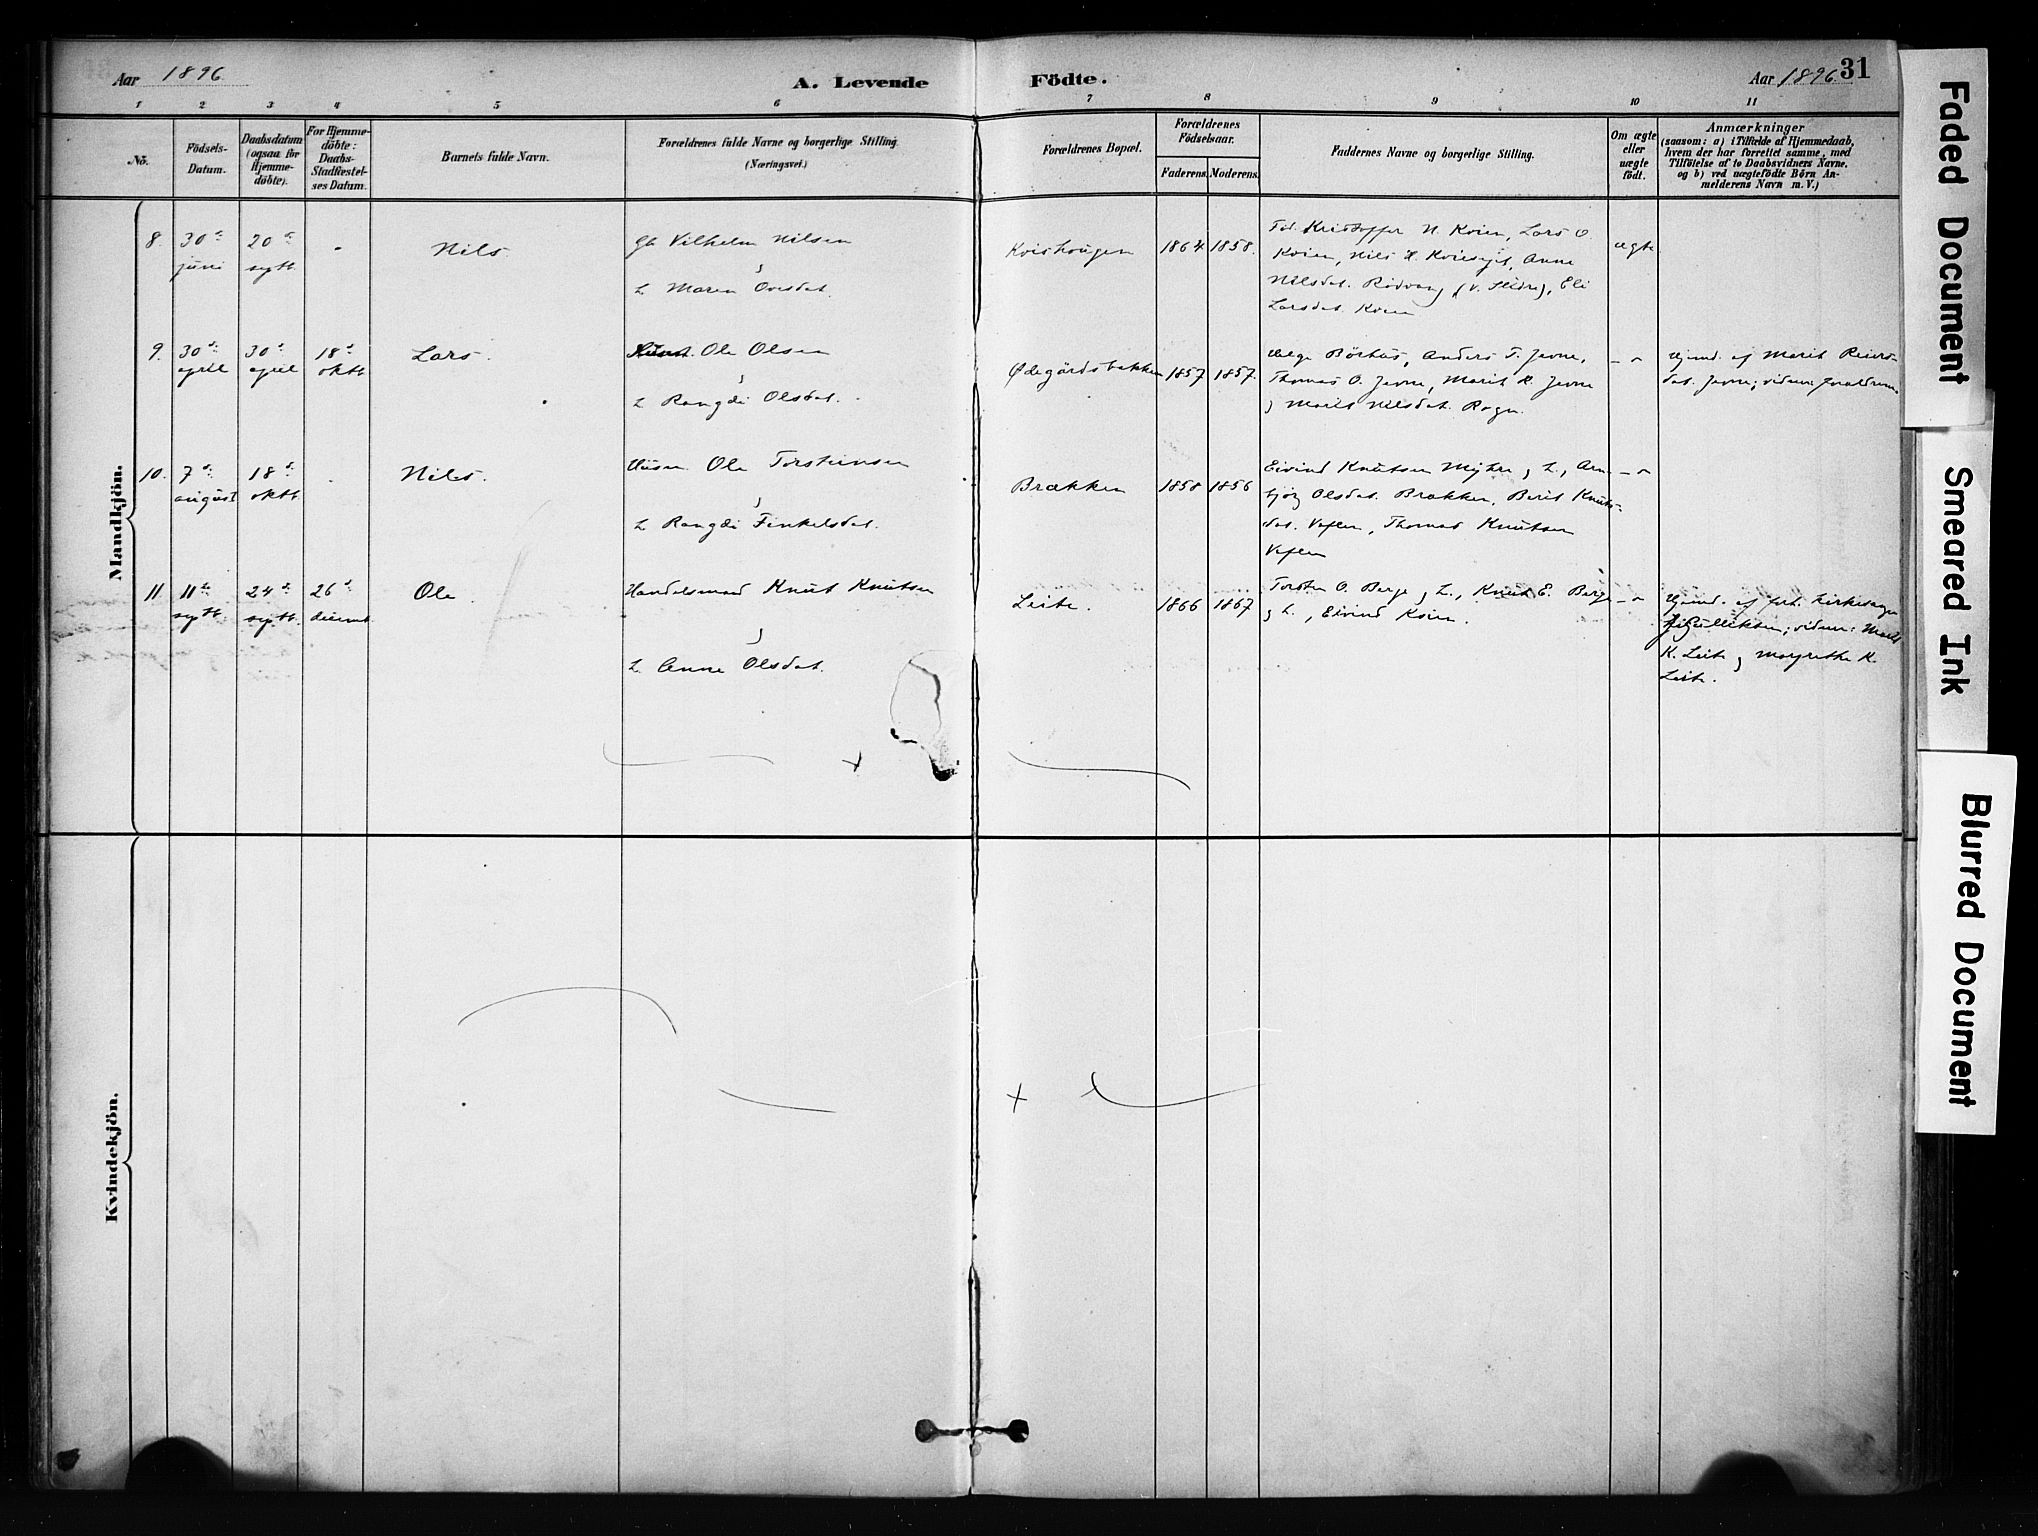 Aar 1896
A. Levende
Födte.
Aar 1896
31
1 2 3 4 5 6 7 8 9 10 11
No.
Födsels-
Datum.
Daabsdatum
(ogsaa for
Hjemme-
döbte).
For Hjemme-
döbte:
Daabs-
Stadfæstel-
ses Datum.
Barnets fulde Navn.
Forældrenes fulde Navne og borgerlige Stilling.
(Næringsvei.)
Forældrenes Bopæl.
Forældrenes
Födselsaar.
Faderens. Moderens.
Faddernes Navne og borgerlige Stilling.
Om ægte
eller
uægte
födt.
Anmærkninger
(saasom: a) i Tilfælde af Hjemmedaab,
hvem der har forrettet samme, med
Tilföielse af to Daabsvidners Navne.
og b) ved uægtefödte Börn An-
melderens Navn m. V.)
Mandkjön.
8. 30te juni
20de sept.
-
Nils
Gb Vilhelm Nilsen
Maren Ovesdat.
Kvishougen
1864 1858.
Kristoffer N. Koien, Lars O.
Koien, Nils Anne
Nilsdat. (V. Slidre), Eli
Larsdat. Koien
ægte
9. 30te april
30te april
18de oktb
Lars.
Ole Olsen
Rangdi Olsdat.
Ødegårdsbakken
1857 1857.
Helge Børhus, Anders T. Jevne,
Thomas O. Jevne, Marit R. Jevne
Marit Nilsdat. Rogn.
Hjemd. af Marit Reiers-
dat. Jevne;
10. 7de august
18de oktb
-
Nils.
Ole Torsteinsen
Rangdi Finkelsdat.
Brækken
1858 1856
Eivind Knutsen Myhre
Olsdat. Brækken, Berit Knuts-
dat. Thomas Knutsen
11 11te septb
24de septb.
26de
Ole
Handelsmand Knut Knutsen
Anne Olsdat.
Leite.
1866 1867
Torsten O. Berge Knut E. Berge
Eivind Koien.
Hjemd. af fort. kirkesanger
Gulliksen; vidner: Marit
K. Leite Margrethe K.
Leite.
Kvindekjön.
Faded Document
Smeared Ink
Blurred Document